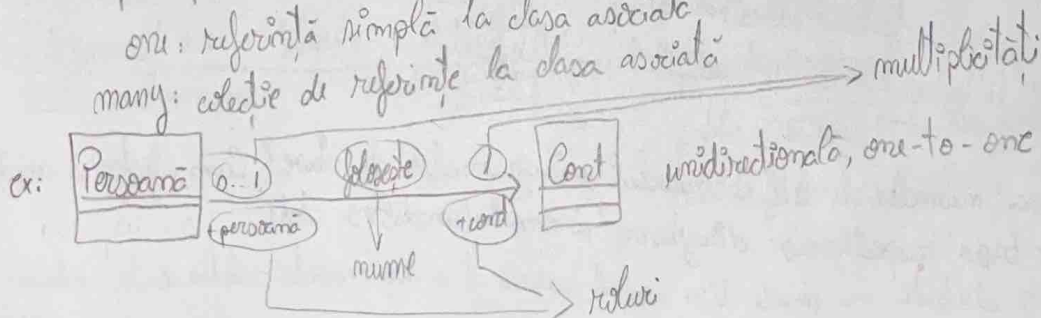 one: referință simplă la clasa asociată
many: colecție de referințe la clasa asociată
multiplicități
ex: Persoană 0..1 folosește 1 Cont unidirecțională, one-to-one
+persoană +cont
nume
roluri